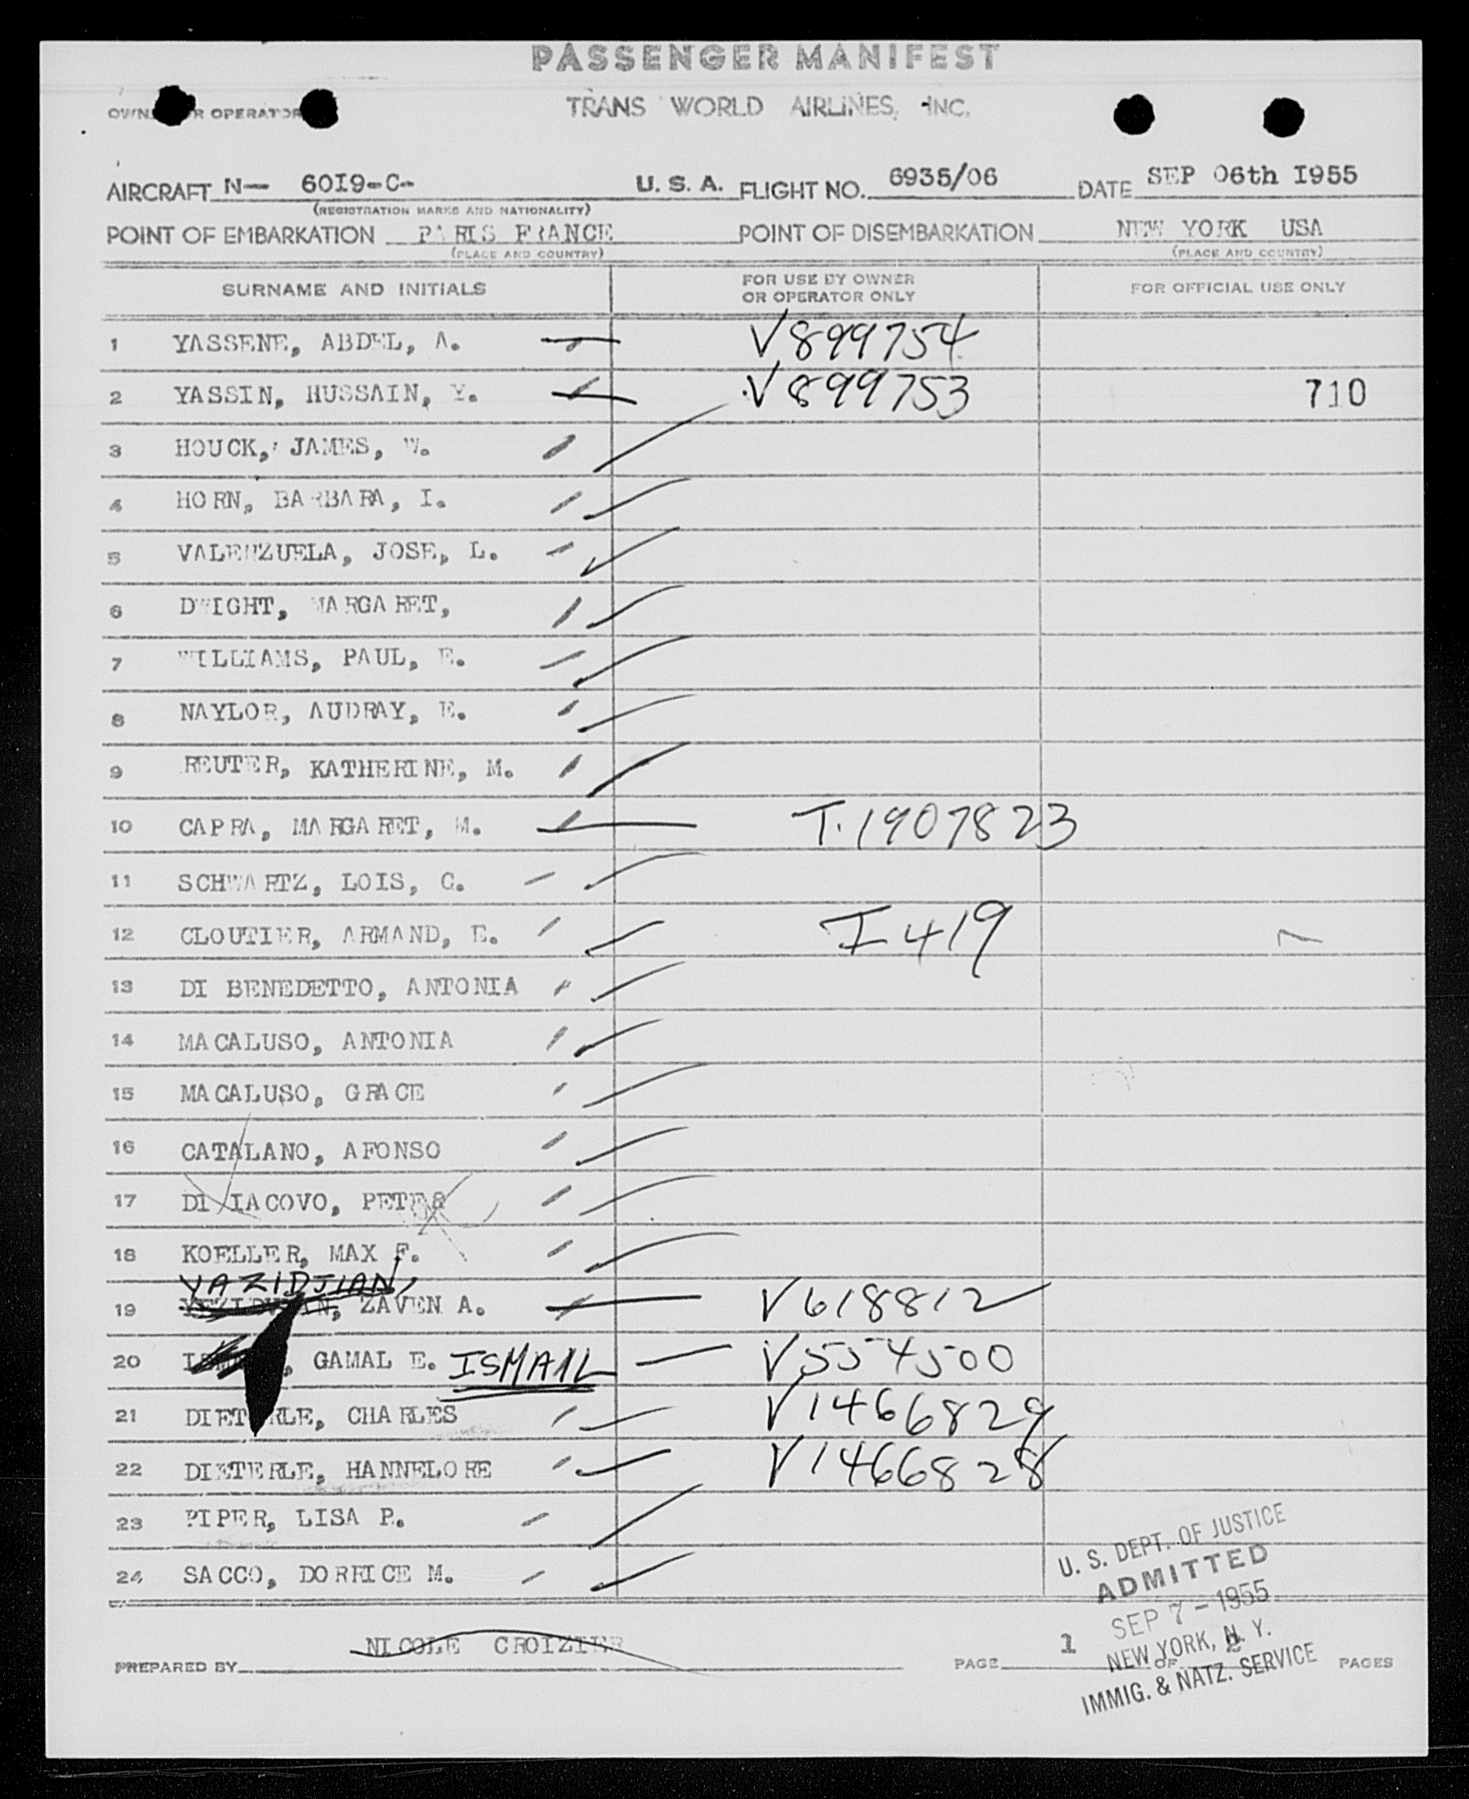 PASSENGER MANIFEST
TRANS WORLD AIRLINES, INC.
AIRCRAFT N— 60I9-C- U. S. A. FLIGHT NO. 6935/06 DATE SEP 06th I955
(REGISTRATION MARKS AND NATIONALITY)
POINT OF EMBARKATION PARIS FRANCE POINT OF DISEMBARKATION NEW YORK USA
(PLACE AND COUNTRY) (PLACE AND COUNTRY)
SURNAME AND INITIALS FOR USE BY OWNER OR OPERATOR ONLY FOR OFFICIAL USE ONLY
1 YASSENE, ABDEL, A. V899754
2 YASSIN, HUSSAIN, Y. V899753 710
3 HOUCK, JAMES, W.
4 HORN, BARBARA, I.
5 VALENZUELA, JOSE, L.
6 DWIGHT, MARGARET,
7 WILLIAMS, PAUL, E.
8 NAYLOR, AUDRAY, E.
9 REUTER, KATHERINE, M.
10 CAPRA, MARGARET, M. T.1907823
11 SCHWARTZ, LOIS, C.
12 CLOUTIER, ARMAND, E. I419
13 DI BENEDETTO, ANTONIA
14 MACALUSO, ANTONIA
15 MACALUSO, GRACE
16 CATALANO, AFONSO
17 DI IACOVO, PETER
18 KOELLER, MAX F.
YAZIDJIAN,
19 ZAVEN A. V618812
20 GAMAL E. ISMAIL V554500
21 DIETERLE, CHARLES V1466829
22 DIETERLE, HANNELORE V1466828
23 PIPER, LISA P.
24 SACCO, DORRICE M.
U. S. DEPT. OF JUSTICE
ADMITTED
SEP 7 - 1955
NEW YORK, N. Y.
IMMIG. & NATZ. SERVICE
PREPARED BY NICOLE CROIZIER PAGE 1 OF PAGES